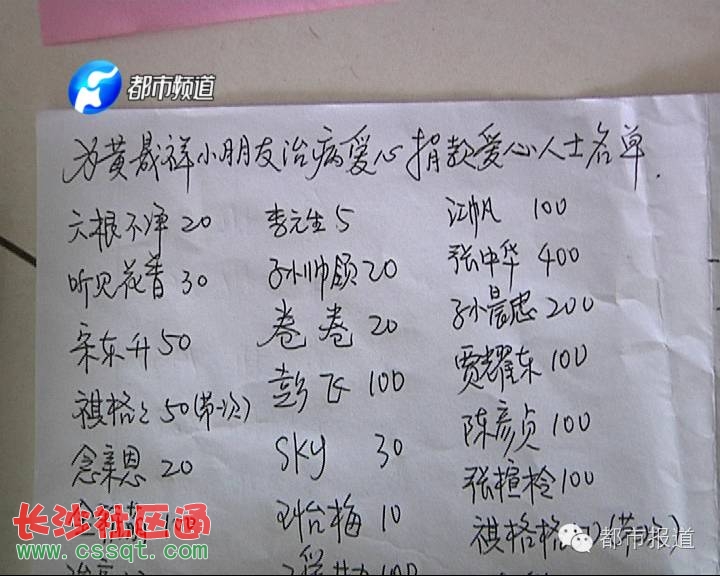 都市频道
为黄晟祥小朋友治病爱心捐款爱心人士名单.
六根不净 20 李元生 5 江帆 100
听见花香 30 孙帅领 20 张中华 400
宋东升 50 卷卷 20 孙晨忠 200
祺格 50 彭飞 100 贾耀东 100
念亲恩 20 SKY 30 陈彦贞 100
怡梅 10 张楦柃 100
祺格格
长沙社区通
www.cssqt.com
都市报道